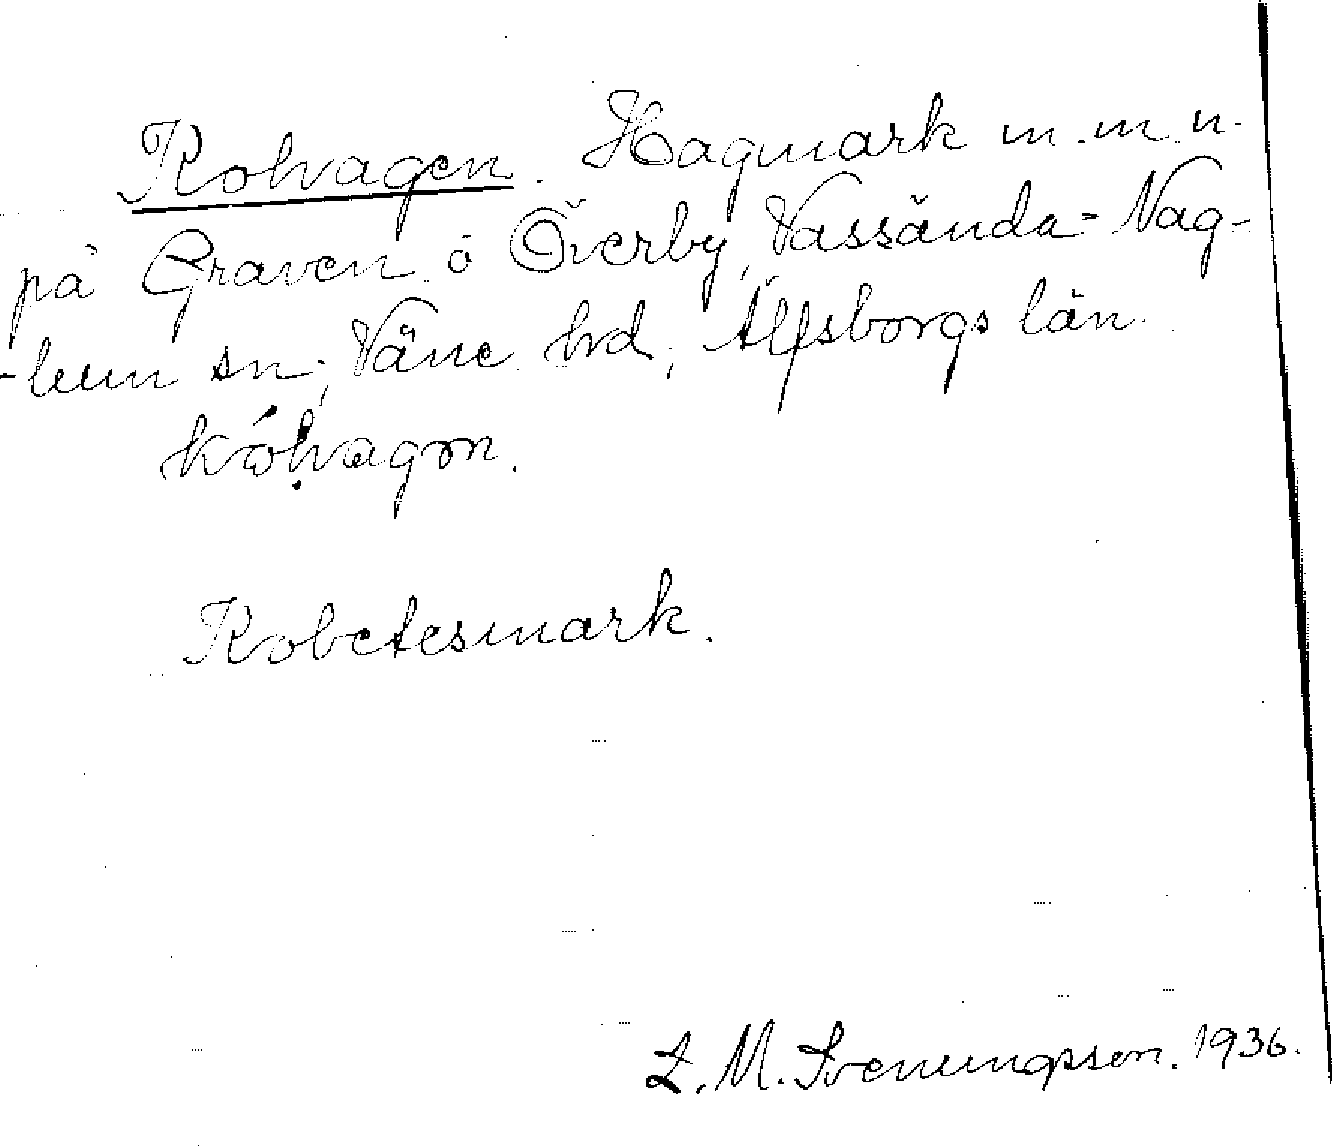 Kohagen. Hagmark m.m.n.
på Graven ö Överby, Vassända-Nag-
-lum sn, Väne hd, Älfsborgs län.
kóhagən.
Kobetesmark.
L. M. Svenungsson. 1936.